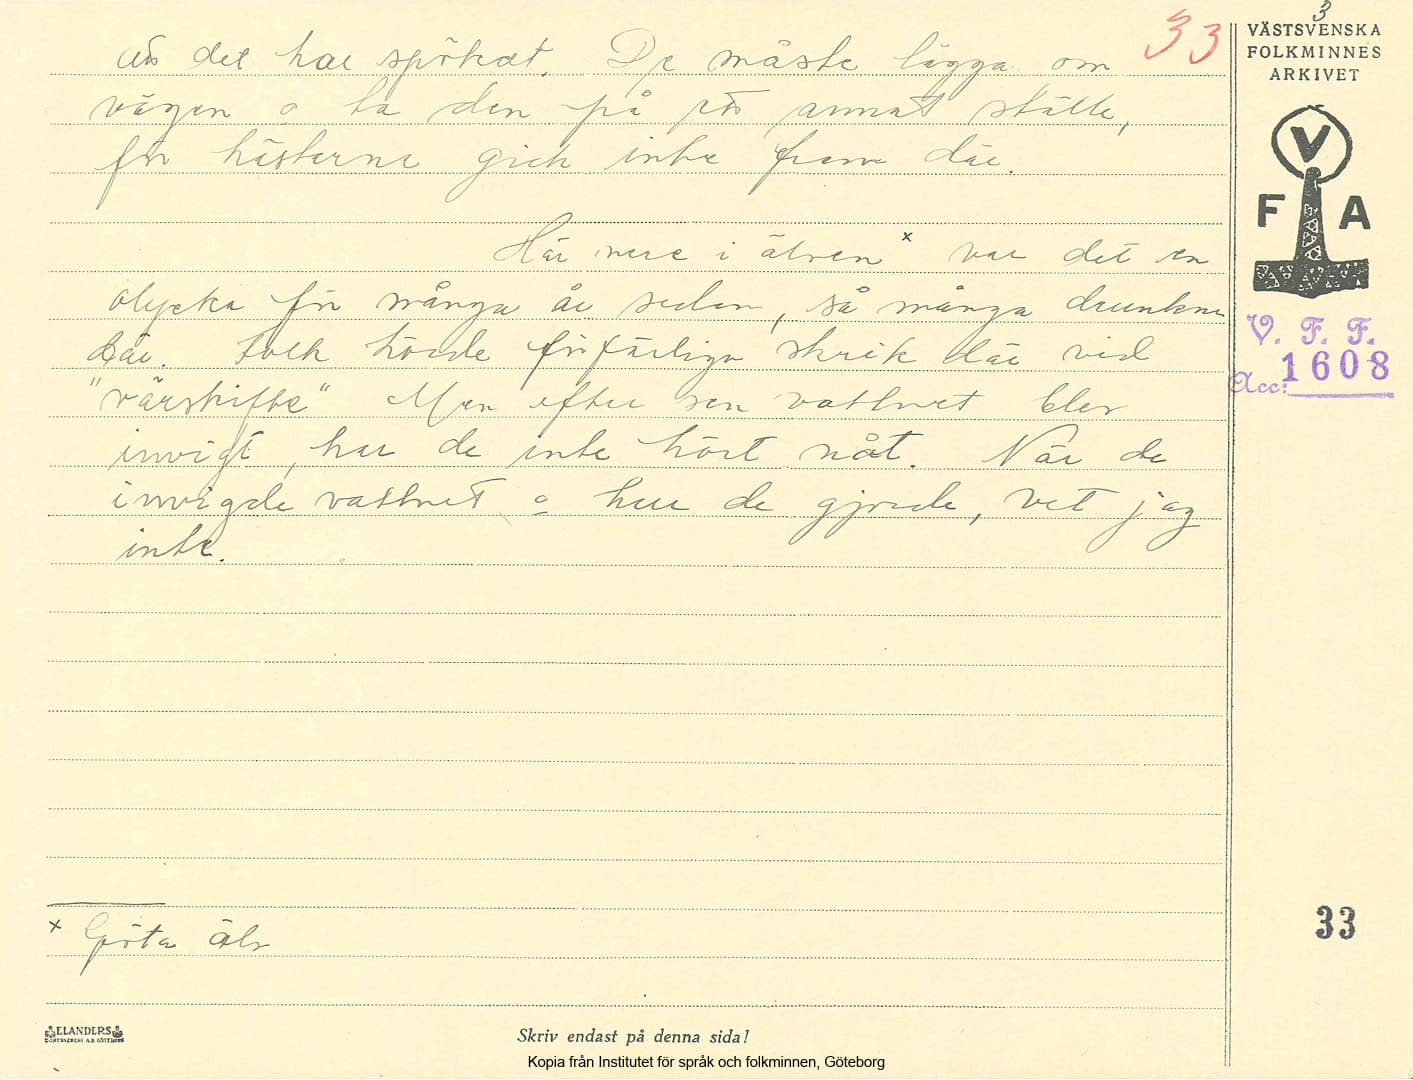 3
VÄSTSVENSKA
FOLKMINNES
ARKIVET
33
V
F A
V. F. F.
Acc: 1608
det har spökat. De måste lägga om
vägen o ta den på annat ställe,
för hästarna gick inte fram där.
Här nere i älven x var det en
olycka för många år sedan, så många drunkna
där. Folk hörde förfärliga skrik där vid
"vårskifte" Men efter sen vattnet blev
invigt, har de inte hört nåt. När de
invigde vattnet o hur de gjorde, vet jag
inte.
x Göta älv
33
ELANDERS
Skriv endast på denna sida!
Kopia från Institutet för språk och folkminnen, Göteborg